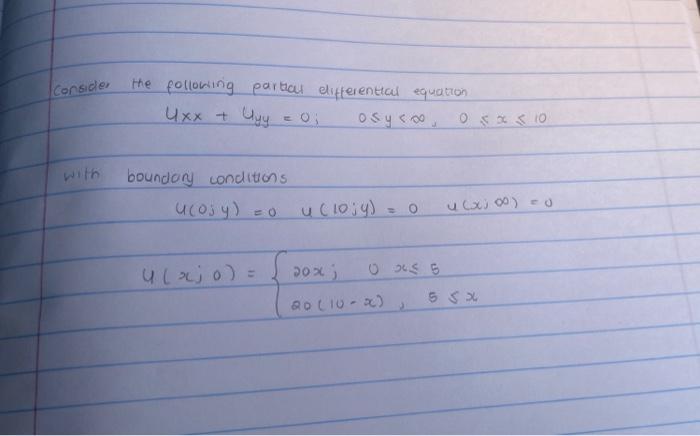 Consider the following partial differential equation
Uxx + Uyy = 0; 0 ≤ y < ∞, 0 ≤ x ≤ 10
with boundary conditions
u(0;y) = 0 u(10;y) = 0 u(x;∞) = 0
u(x;0) = { 20x; 0 x ≤ 5
20(10-x), 5 ≤ x